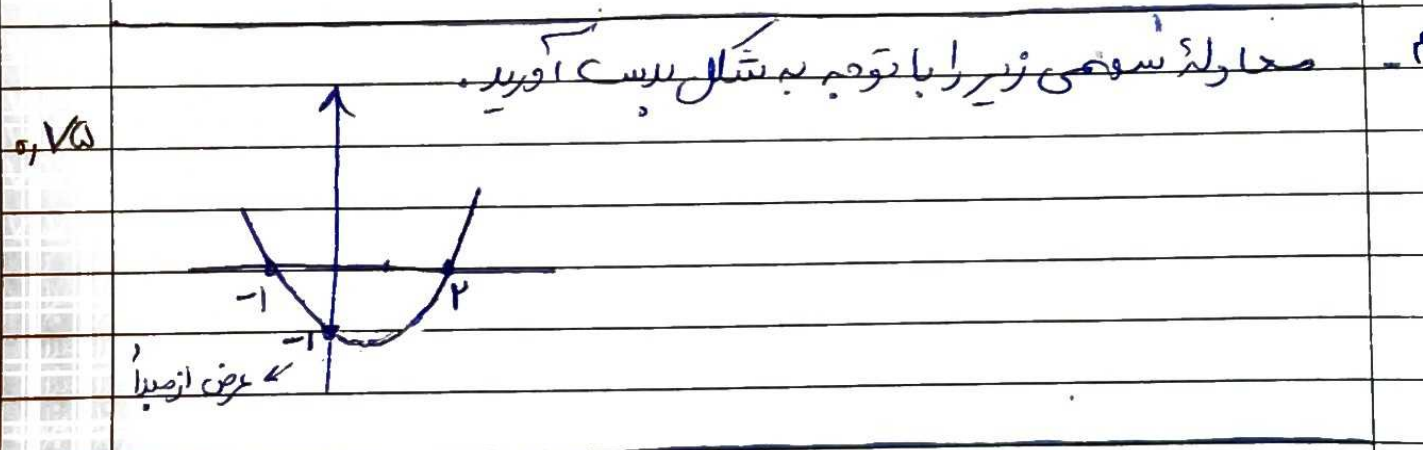 معادلهٔ سهمی زیر را با توجه به شکل بدست آورید.
۰,۷۵
-۱
۲
-۱
عرض از مبدأ